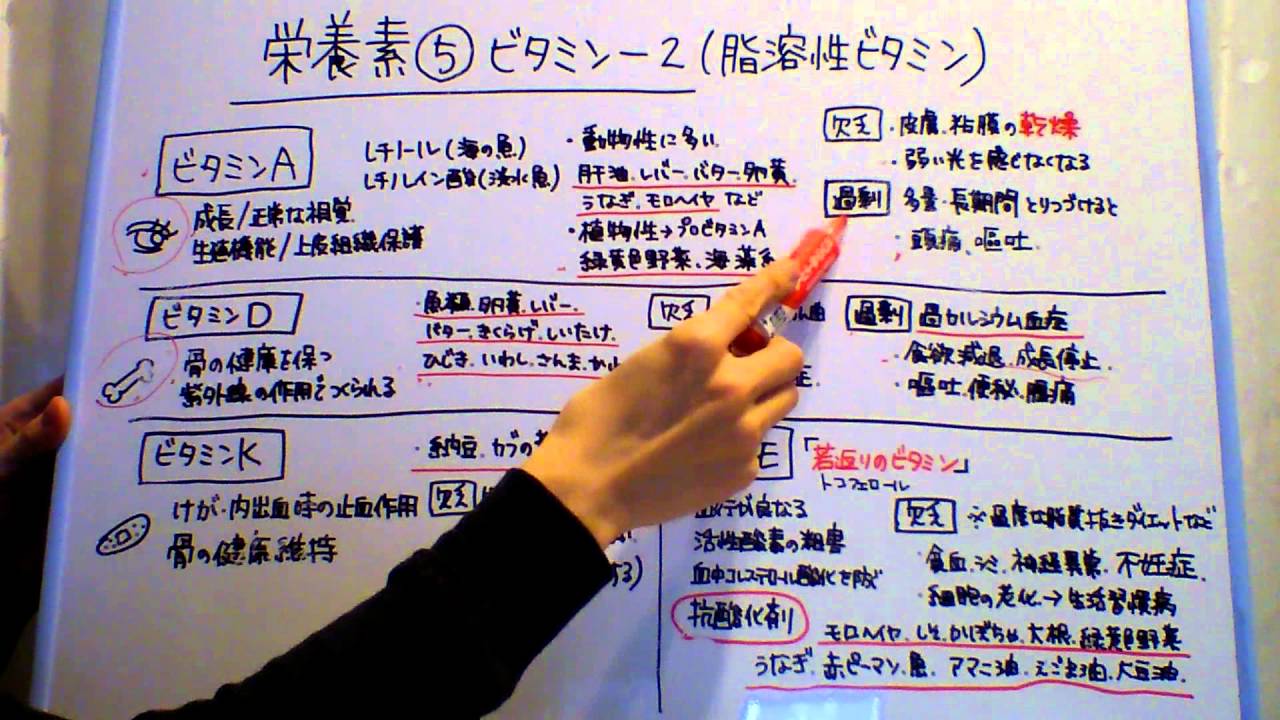 栄養素⑤ビタミン－2(脂溶性ビタミン)
ビタミンA
成長/正常な視覚
生殖機能/上皮組織保護
レチノール(海の魚)
レチノイン酸(淡水魚)
・動物性に多い
肝油、レバー、バター、卵黄、
うなぎ、モロヘイヤ など
・植物性→プロビタミンA
緑黄色野菜、海藻系
欠乏 ・皮膚、粘膜の乾燥
・弱い光を感じなくなる
過剰 多量・長期間とりつづけると
・頭痛、嘔吐
ビタミンD
骨の健康を保つ
紫外線の作用でつくられる
・魚類、卵黄、レバー、
バター、きくらげ、しいたけ、
ひじき、いわし、さんま、かつ
欠乏
症
過剰 高カルシウム血症
・食欲減退、成長停止
・嘔吐、便秘、腰痛
ビタミンK
けが・内出血時の止血作用
骨の健康維持
・納豆、カブの
欠乏
する)
E 「若返りのビタミン」
トコフェロール
血行が良くなる
活性酸素の阻害
血中コレステロール酸化を防ぐ
抗酸化剤
欠乏 ※過度な脂質抜きダイエットなど
・貧血、シミ、神経異常、不妊症、
・細胞の老化→生活習慣病
モロヘイヤ、しそ、かぼちゃ、大根、緑黄色野菜
うなぎ、赤ピーマン、魚、アマニ油、えごま油、大豆油、